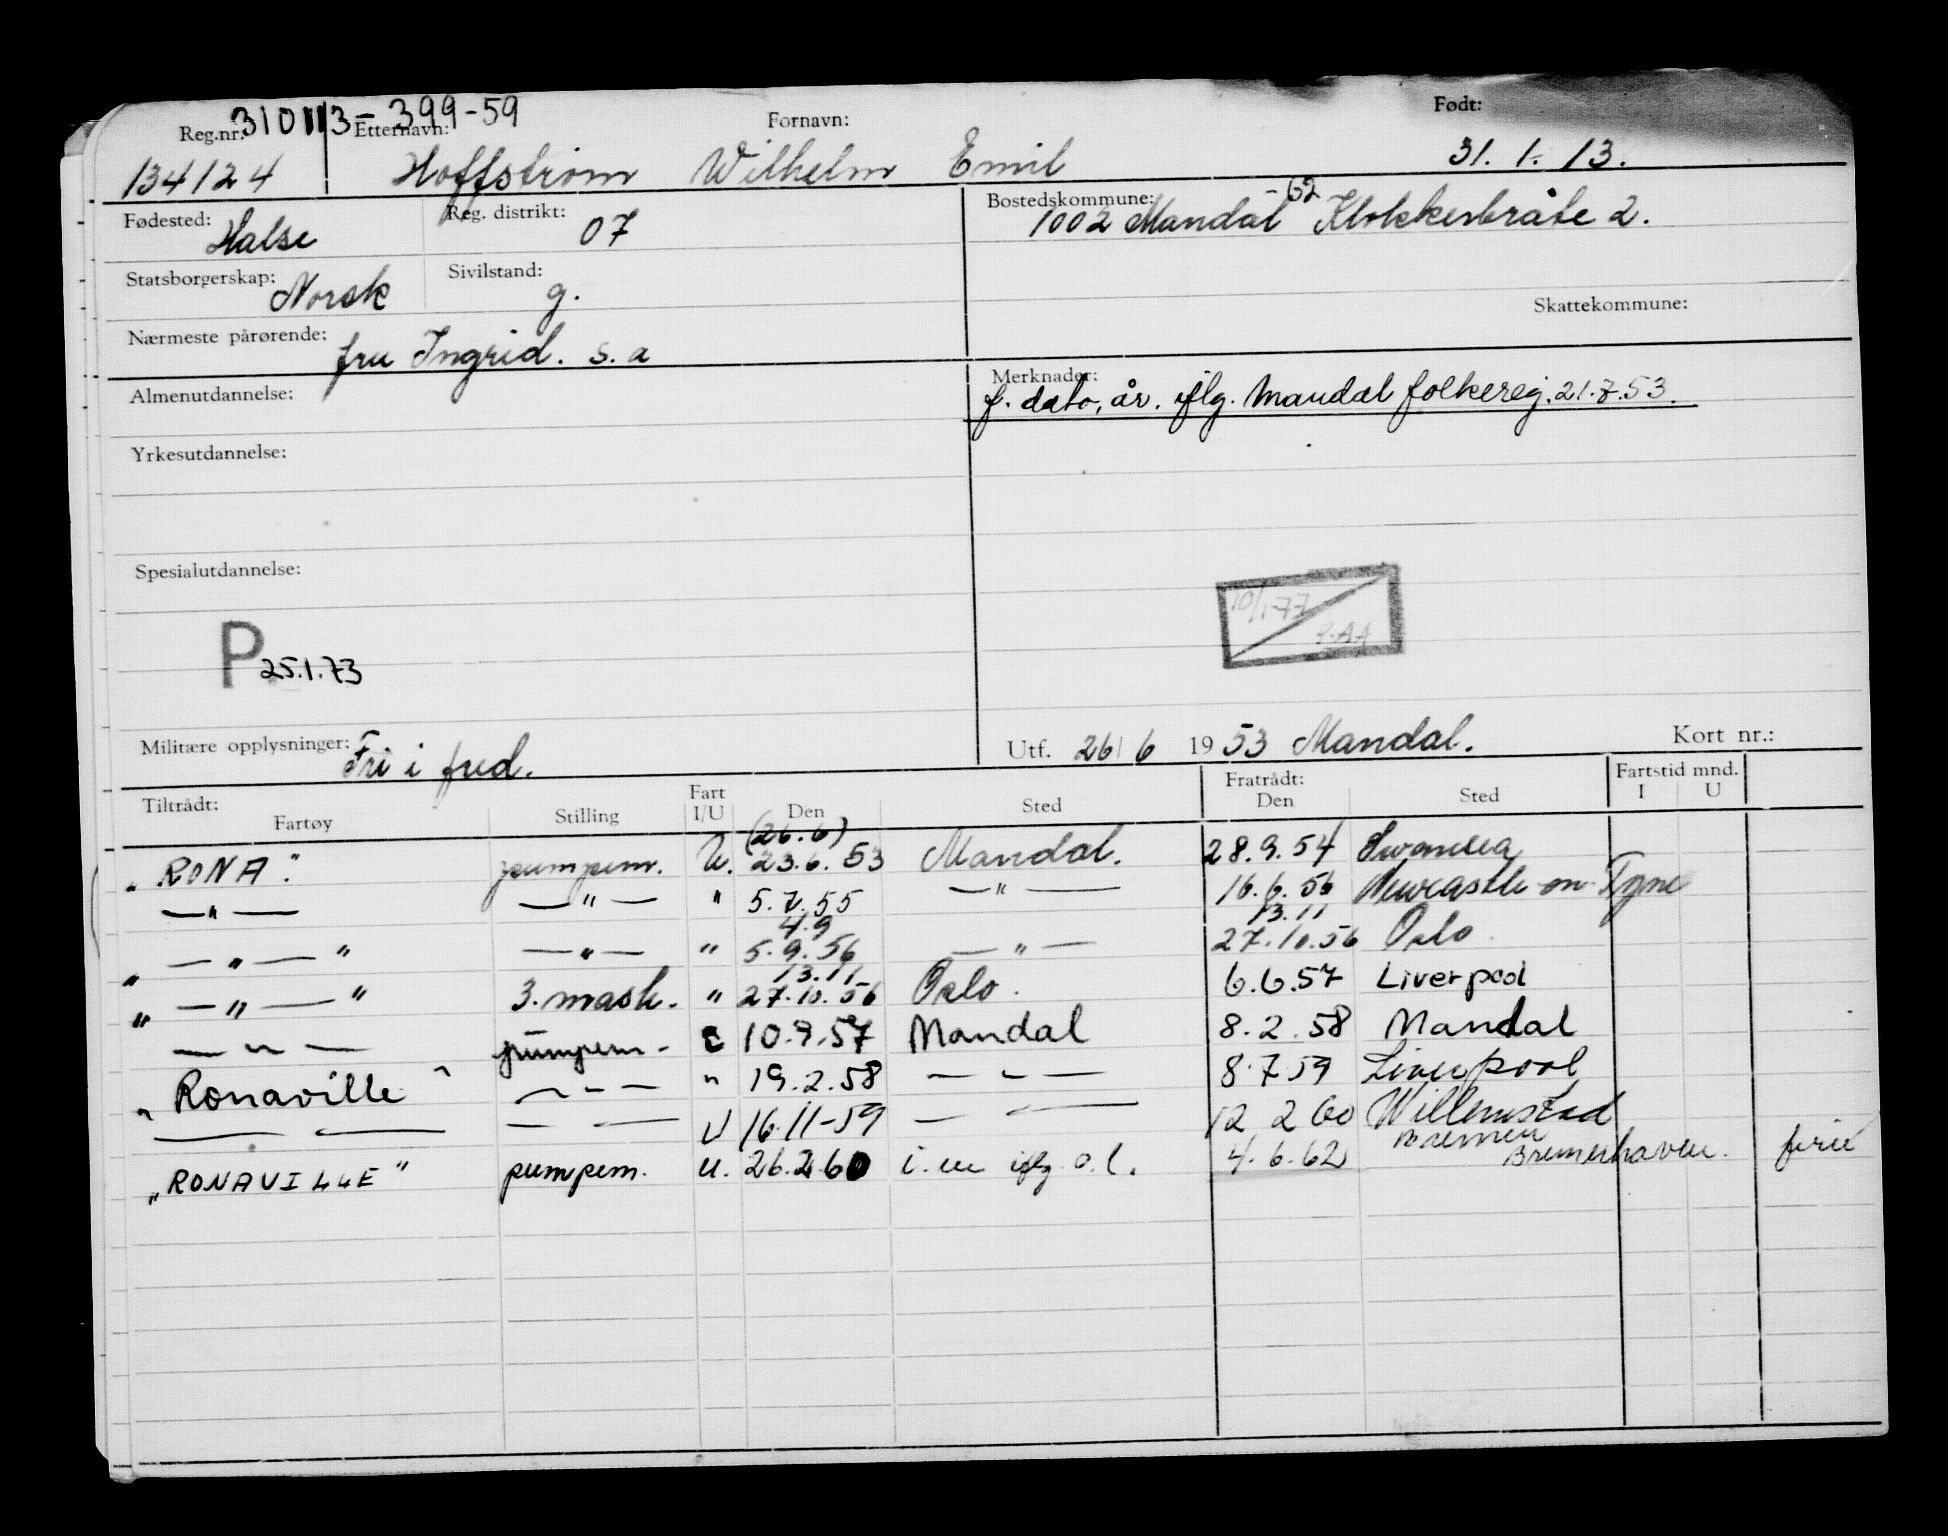 310113-399-59
Reg.nr. Etternavn: Fornavn: Født:
134124 Hoffstrøm Wilhelm Emil 31. 1. 13.
Fødested: Halse Reg. distrikt: 07 Bostedskommune: 1002 Mandal -62 Klokkerbråte 2.
Statsborgerskap: Norsk Sivilstand: g.
Skattekommune:
Nærmeste pårørende: fru Ingrid. s. a
Almenutdannelse: Merknader: f. dato, år. iflg. Mandal folkereg. 21.7.53.
Yrkesutdannelse:
Spesialutdannelse:
10/1-77
P 25.1.73
Militære opplysninger: Fri i fred. Utf. 26/6 1953 Mandal. Kort nr.:
Tiltrådt: Fratrådt: Fartstid mnd.
Fartøy Stilling Fart I/U Den Sted Den Sted I U
(26.6)
„RONA" pumpem. U. 23.6.53 Mandal. 28.9.54 Swansea
—"— —"— " 5.7.55 —"— 16.6.56 Newcastle-on-Tyne
4.9 13.11
„—"—" —"— " 5.9.56 —"— 27.10.56 Oslo
13.11
„—"—" 3. mask. " 27.10.56 Oslo. 6.6.57 Liverpool
—"— pumpem. 10.9.57 Mandal 8.2.58 Mandal
„Ronaville" —"— " 19.2.58 —"— 8.7.59 Liverpool
— — — — U 16.11-59 — — 12 2 60 Willemstad
Bremen
„RONAVILLE" pumpem. u. 26.2.60 i.m iflg. o.l. 4.6.62 Bremerhaven. ferie